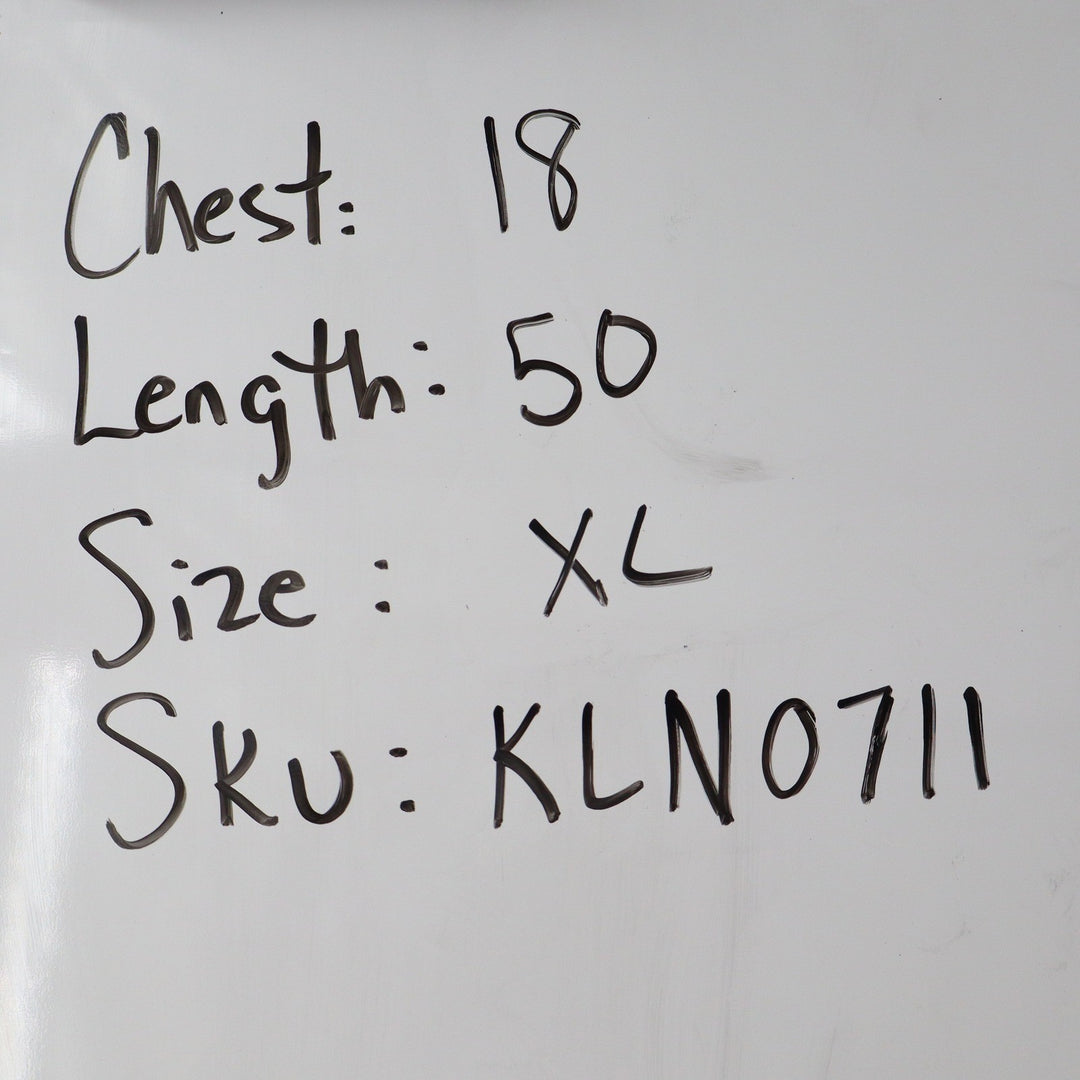 Chest: 18
Length: 50
Size: XL
SKU: KLN0711